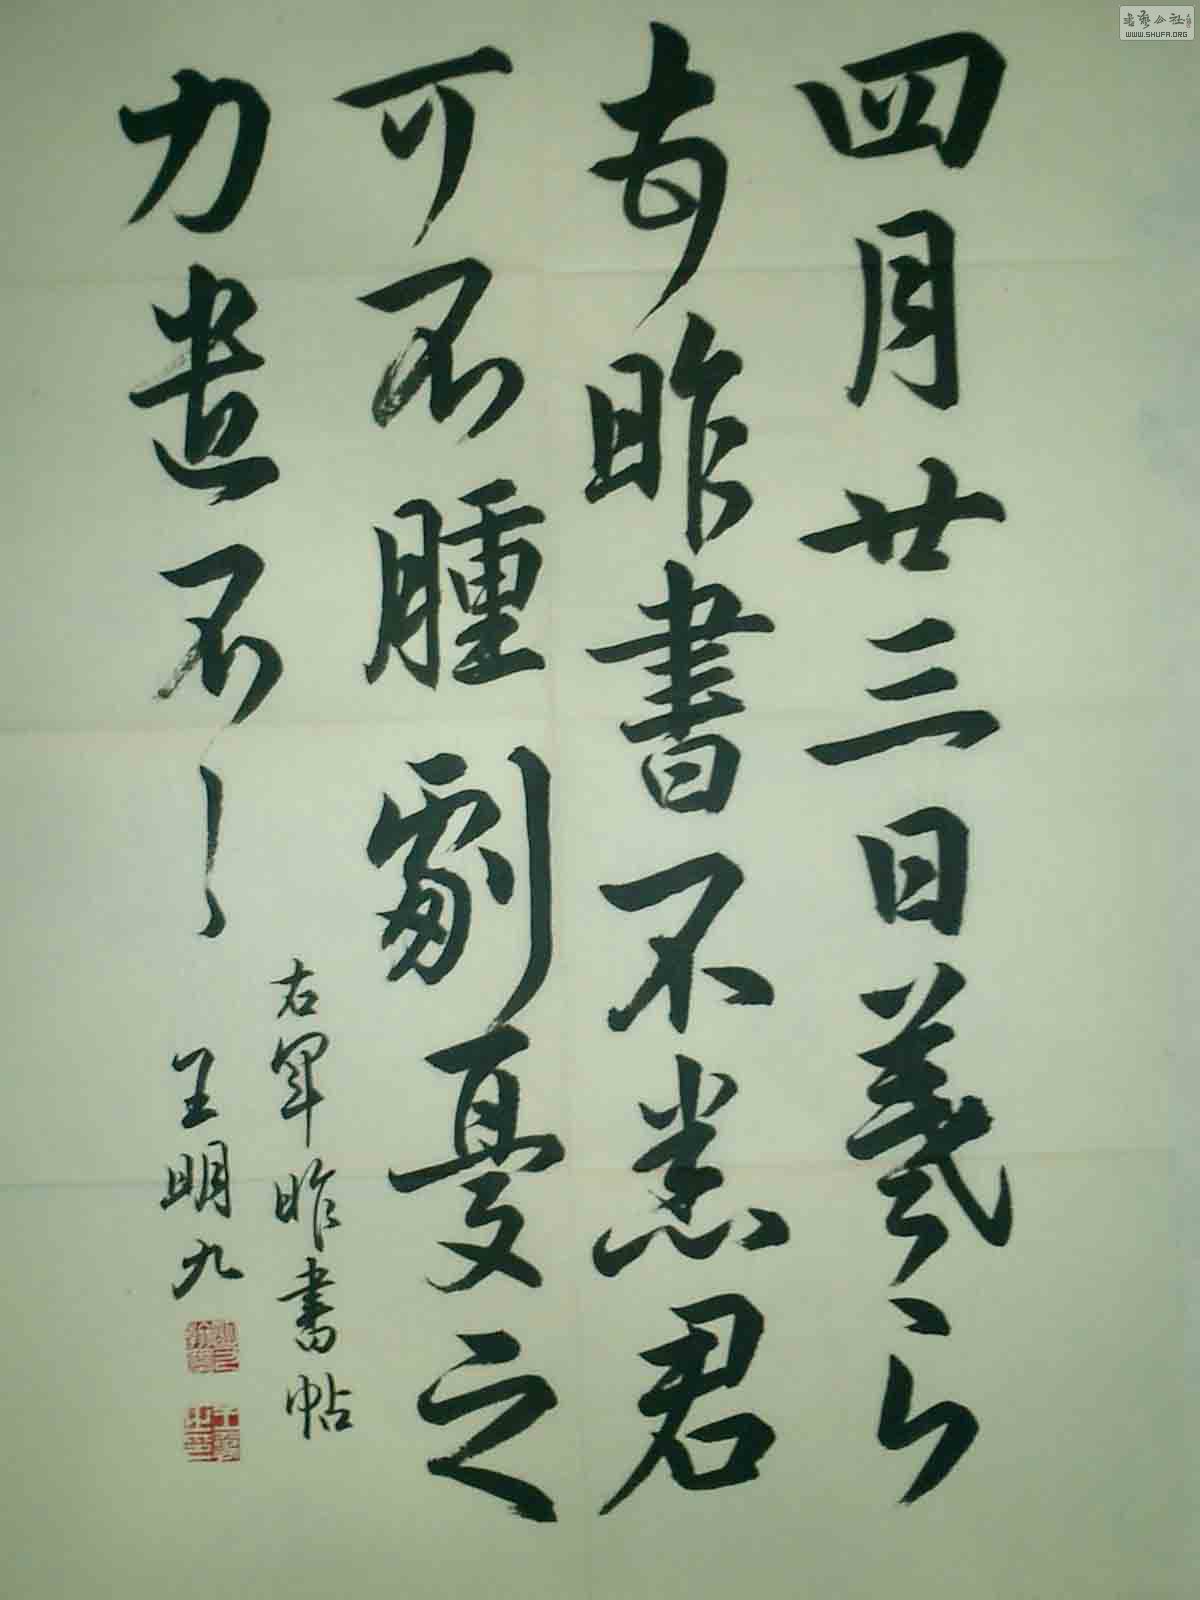 四月廿三日羲之
頓首昨書不悉君
可不腫劇憂之
力遣不〻
右軍昨書帖
王明九
書藝公社
WWW.SHUFA.ORG